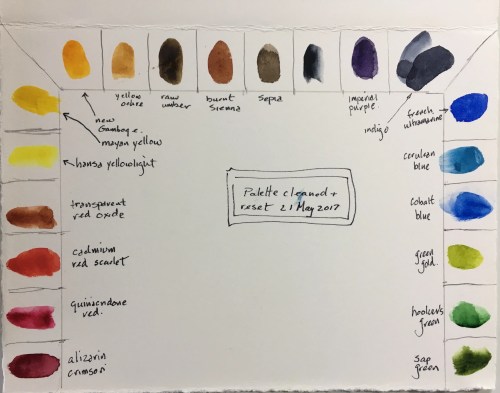 yellow
ochre
raw
umber
burnt
sienna
Sepia
imperial
purple
indigo
new
Gamboge
mayan yellow
hansa yellow light
transparent
red oxide
cadmium
red scarlet
quinacridone
red.
alizarin
crimson
Palette cleaned +
reset 21 May 2017
french
ultramarine
cerulean
blue
cobalt
blue
green
gold.
hooker's
green
sap
green